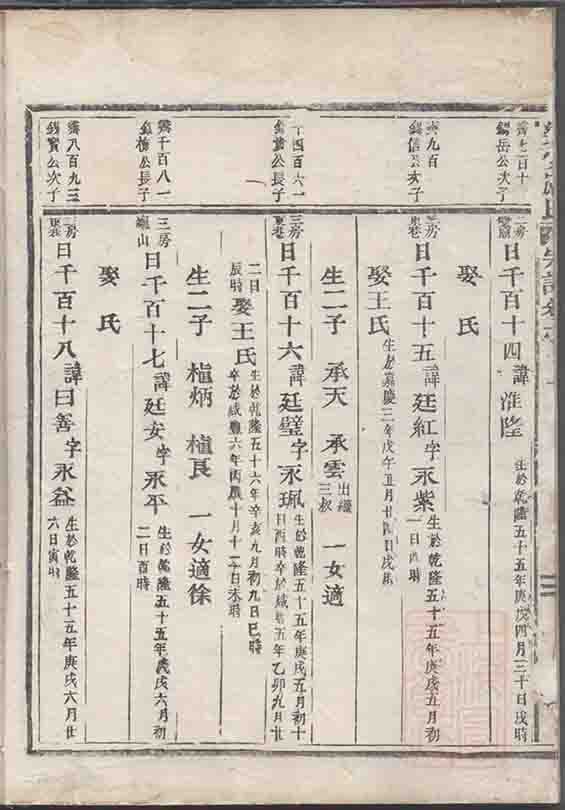 公次子
鍚岳公次子
九百
公次子
四百六一
公長子
千百八一
公長子
八百九三
寶公次子
二房
日千百十四 諱淮隆 生於乾隆五十五年庚戌四月三十日戌時
娶 氏
日千百十五 諱廷紅 字永紫 生於乾隆五十五年庚戌五月初
一日 時
娶王氏 生於嘉慶三年戊午五月廿四日戌時
生二子 承天 承雲 出繼三叔 一女適
三房
日千百十六 諱廷璧 字永珮 生於乾隆五十五年庚戌五月初十
日酉時卒於咸豐五年乙卯九月廿
二日辰時 娶王氏 生於乾隆五十六年辛亥九月初九日巳時
卒於咸豐六年丙辰十月十二日未時
生二子 植炳 植良 一女適徐
三房 山
日千百十七 諱廷安 字永平 生於乾隆五十五年庚戌六月初
二日酉時
娶 氏
二房
日千百十八 諱曰善 字永益 生於乾隆五十五年庚戌六月廿
六日寅時